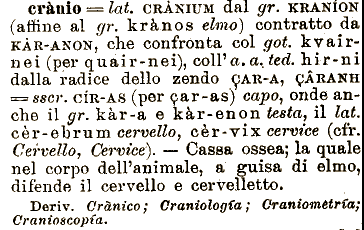 crànio = lat. CRÀNIUM dal gr. KRANÍON
(affine al gr. krànos elmo) contratto da
KÀR-ANON, che confronta col got. kvaír-
nei (per quair-nei), coll'a. a. ted. hir-ni
dalla radice dello zendo ÇAR-A, ÇÂRANH
= sscr. CÍR-AS (per çar-as) capo, onde an-
che il gr. kàr-a e kàr-enon testa, il lat.
cèr-ebrum cervello, cèr-vix cervice (cfr.
Cervello, Cervice). — Cassa ossea; la quale
nel corpo dell'animale, a guisa di elmo,
difende il cervello e cervelletto.
Deriv. Crànico; Craniología; Craniometría;
Cranioscopía.